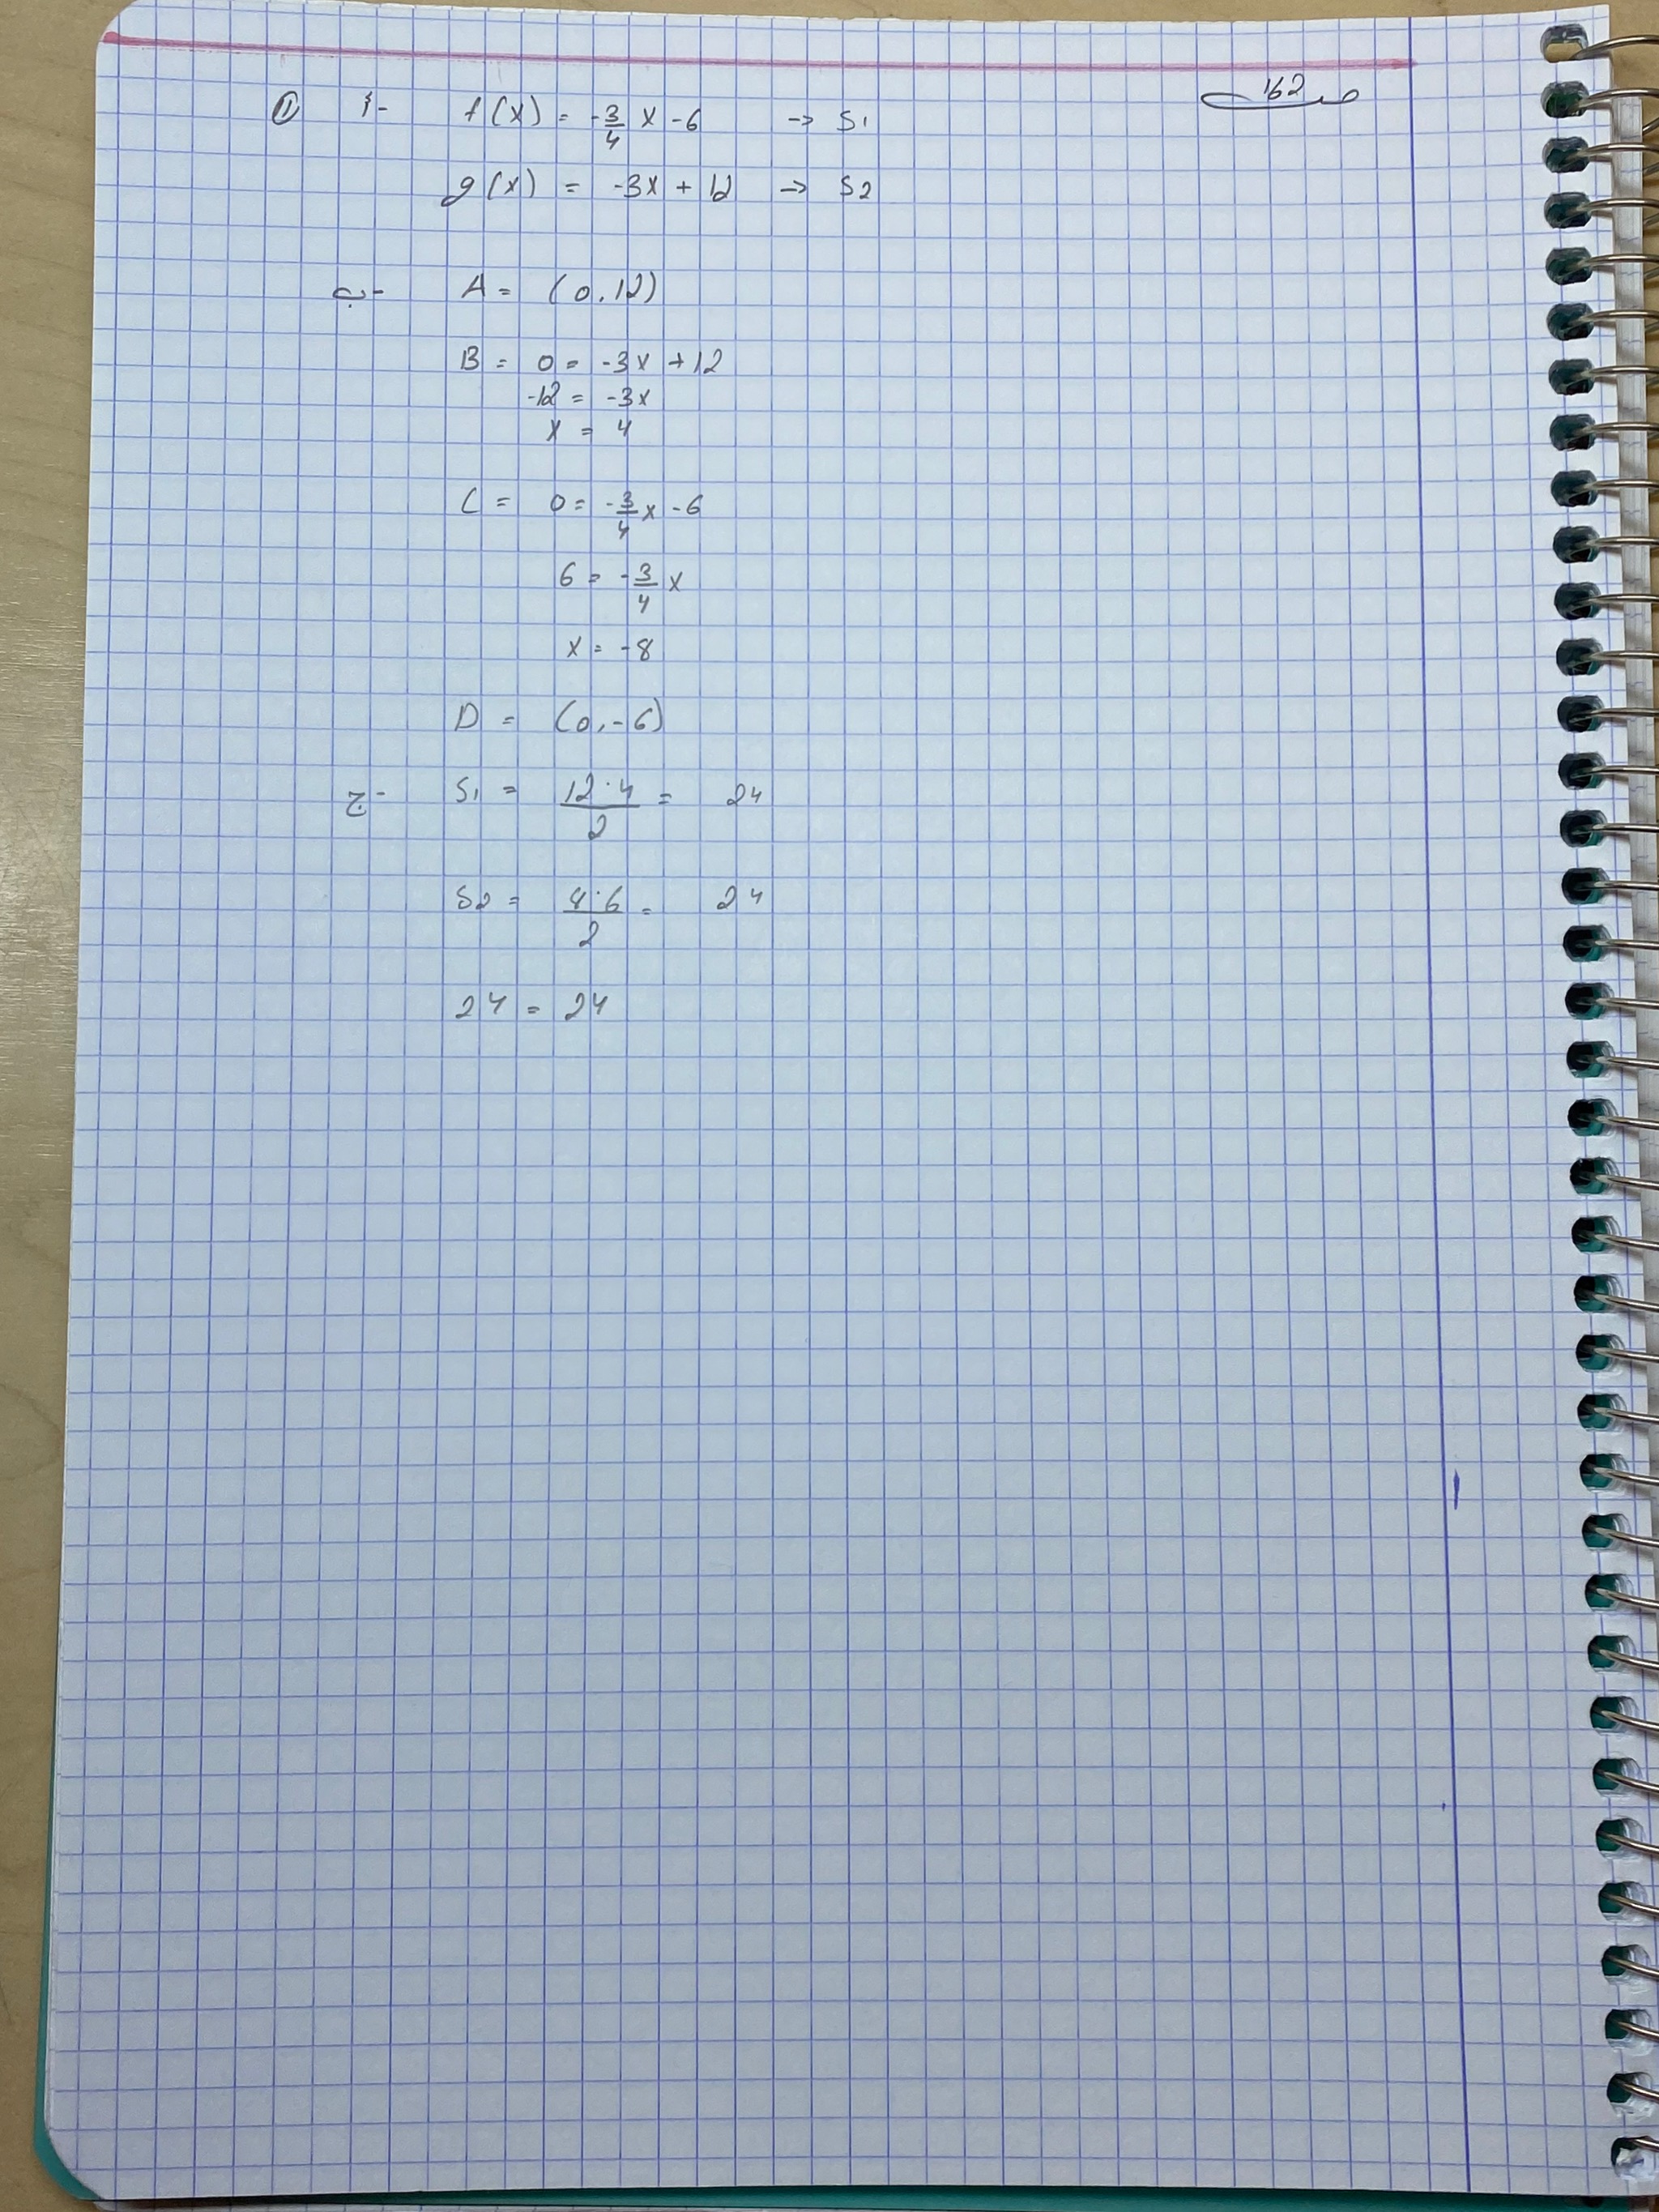 ص 162
① أ- f(x) = -3/4 x - 6 -> S1
g(x) = -3x + 12 -> S2
ب- A = (0, 12)
B = 0 = -3x + 12
-12 = -3x
x = 4
C = 0 = -3/4 x - 6
6 = -3/4 x
x = -8
D = (0, -6)
ج- S1 = 12·4/2 = 24
S2 = 8·6/2 = 24
24 = 24